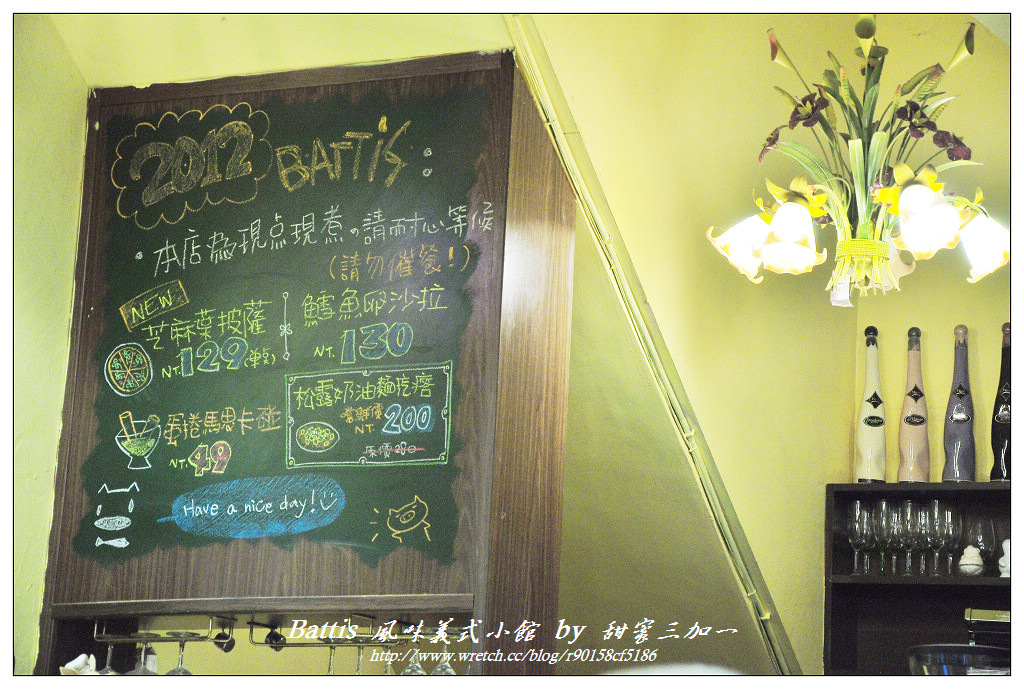 2012 BATTIS
本店為現点現煮。請耐心等候
(請勿催餐!)
NEW
芝麻葉披薩
NT.129(單包)
鱈魚卵沙拉
NT.130
松露奶油麵疙瘩
嚐鮮價
NT.200
原價280
蛋捲馬思卡碰
NT.49
Have a nice day!
Battis 風味義式小館 by 甜蜜三加一
http://www.wretch.cc/blog/r90158cf5186